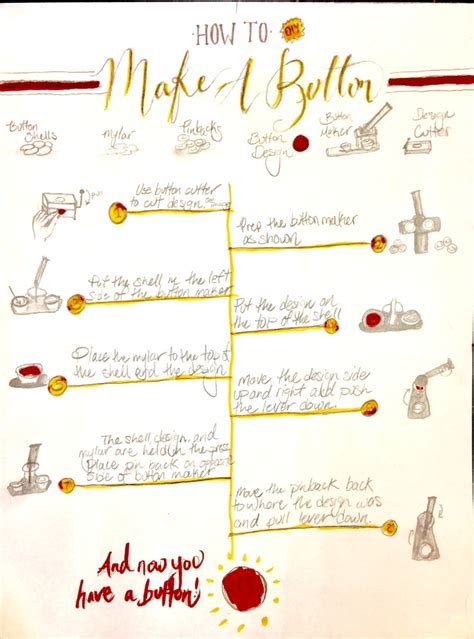 HOW TO
DIY
Make A Button
Button
Shells
Mylar
Pinbacks
Button
Design
Button
Maker
Design
Cutter
Use button cutter
to cut design.
1
Prep the button maker
as shown
2
Put the shell in the left
side of the button maker
3
Put the design on
the top of the shell
4
Place the mylar to the top of
the shell and the design
5
Move the design side
up and right and push
the lever down.
6
The shell, design, and
mylar are held in the press.
Place pin back on opposite
side of button maker
7
Move the pinback back
to where the design was
and pull lever down.
8
And now you
have a button!